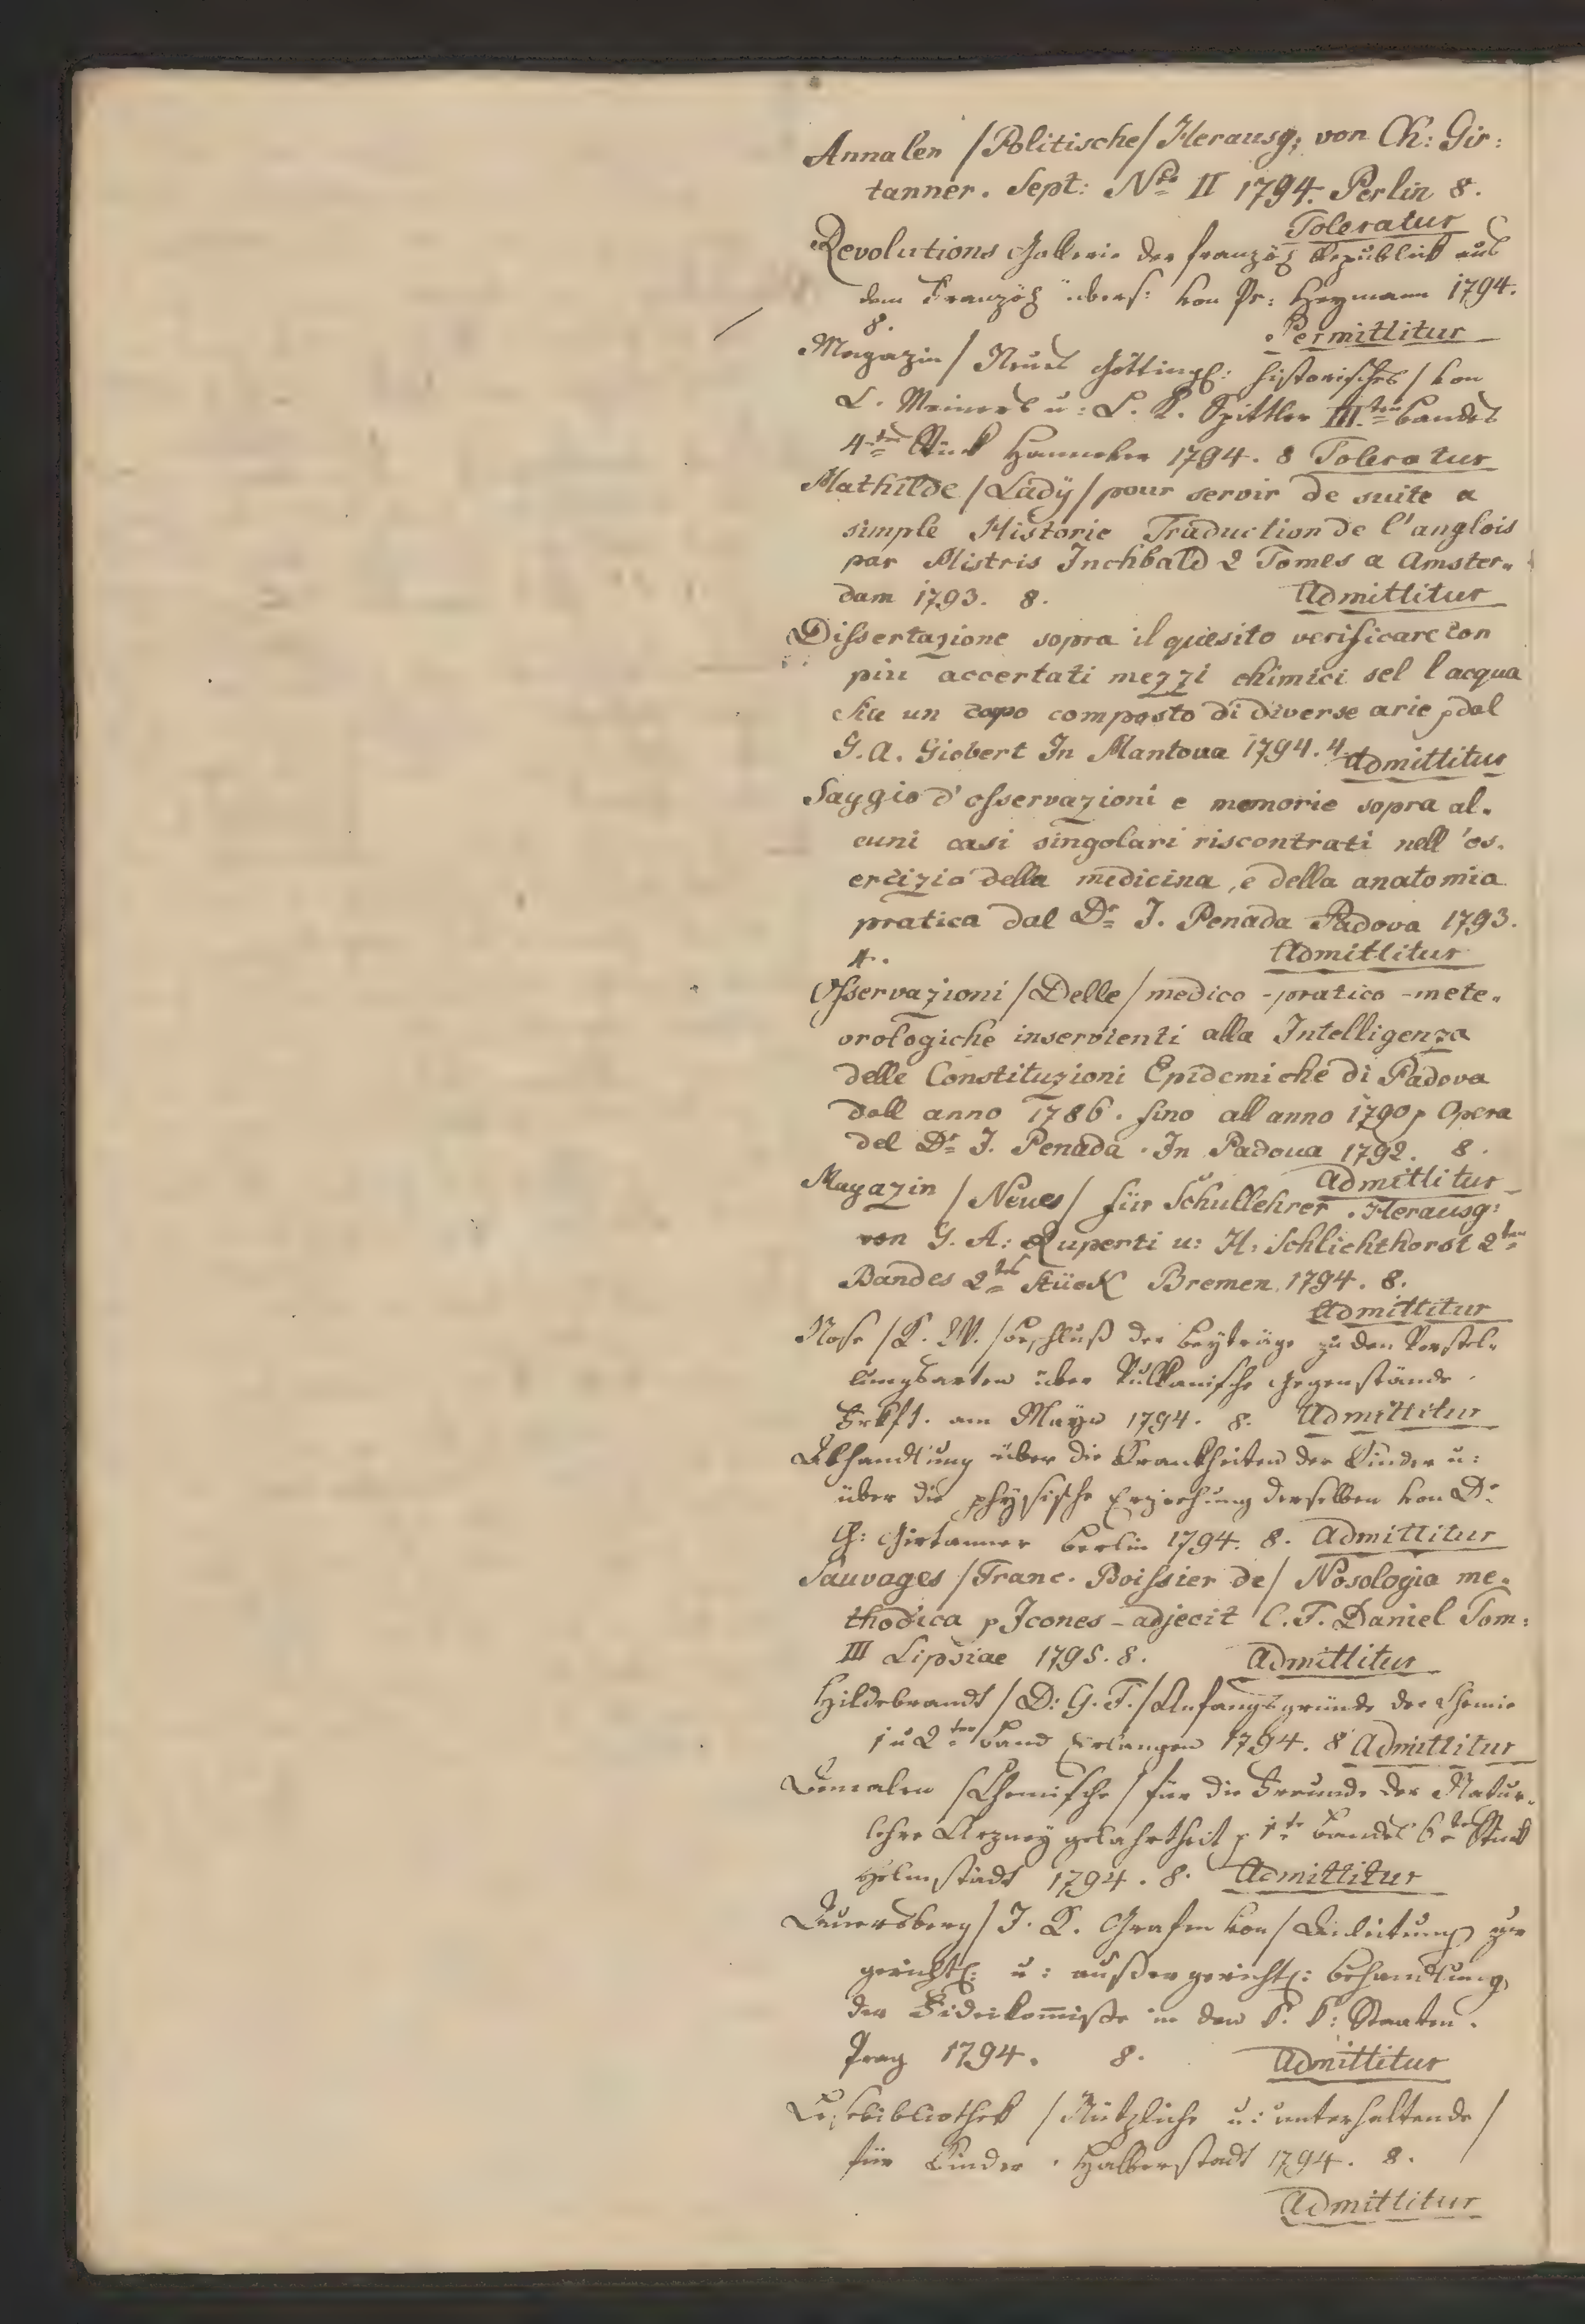 Annalen /Politische/ Herausg; von Ch: Gir:
tanner. Sept: Nro II 1794. Perlin 8.
Toleratur
Revolutions Gallerie der französ Republick aus
dem Französ übers: von Pr: Heymann 1794.
8.
Permittitur
Magazin / Neues Götting: historisches / von
C. Meiners u: L. T. Spittler III.ten Bandes
4tes Stück Hannover 1794. 8 Toleratur
Mathilde /Lady/ pour servir de suite a
simple Historie Traduction de l'anglois
par Mistris Inchbald 2 Tomes a Amster„
dam 1793. 8. Admittitur
Dissertazione sopra il quesito verificare con
piu accertati mezzi chimici sel l acqua
sia un copo composto di diverse arie p dal
G. A. Giobert In Mantova 1794. 4 Admittitur
Saggio d'osservazioni e memorie sopra al„
cuni casi singolari riscontrati nell 'es„
ercizio della medicina, e della anatomia
pratica dal Dr J. Penada Padova 1793.
4. Admittitur
Osservazioni /Delle/ medico-pratico-mete„
orologiche inservienti alla Intelligenza
delle Constituzioni Epidemiche di Padova
dall anno 1786. fino all anno 1790 p Opera
del Dr J. Penada. In Padova 1792. 8.
Admittitur
Magazin /Neues/ für Schullehrer. Herausg:
von G. A: Ruperti u: H: Schlichthorst 2ten
Bandes 2tes Stück Bremen 1794. 8.
Admittitur
Nose /K. W./ Beschluß der Beyträge zu den Vorstel„
lungsarten über Vulkanische Gegenstände.
Frkft. am Mayn 1794. 8. Admittitur
Abhandlung über die Krankheiten der Kinder u:
über die physische Erziehung derselben von Dr
Ch: Girtanner Berlin 1794. 8. Admittitur
Sauvages /Franc. Boissier de/ Nosologia me„
thodica p Icones-adjecit C. F. Daniel Tom:
III Lipsiae 1795. 8. Admittitur
Hildebrandt /D: G. F./ Anfangsgründe der Chemie
1 u 2ter Band Erlangen 1794. 8 Admittitur
Annalen /Chemische/ für die Freunde der Natur„
lehre Arzneygelahrtheit p 1te Bandes 6tes Stück
Helmstädt 1794. 8. Admittitur
Auersberg / J. K. Grafen von / Anleitung zur
gerichtl: u: außergerichtl: Behandlung
der Fideikom̄iße in den k. k: Staaten.
Prag 1794. 8. Admittitur
Lesebibliothek /Nützliche u: unterhaltende/
für Kinder. Halberstadt 1794. 8.
Admittitur